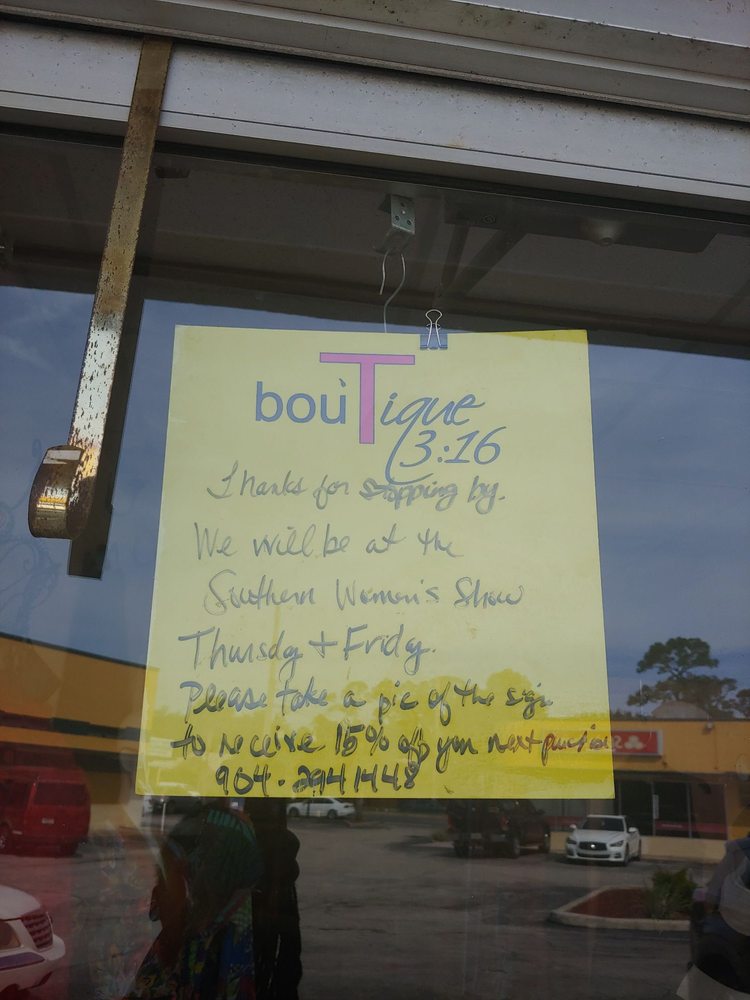 bouTique
3:16
Thanks for stopping by.
We will be at the
Southern Women's Show
Thursdy + Fridy.
Please take a pic of the sign
to receive 15% off your next purchase
904.2941448